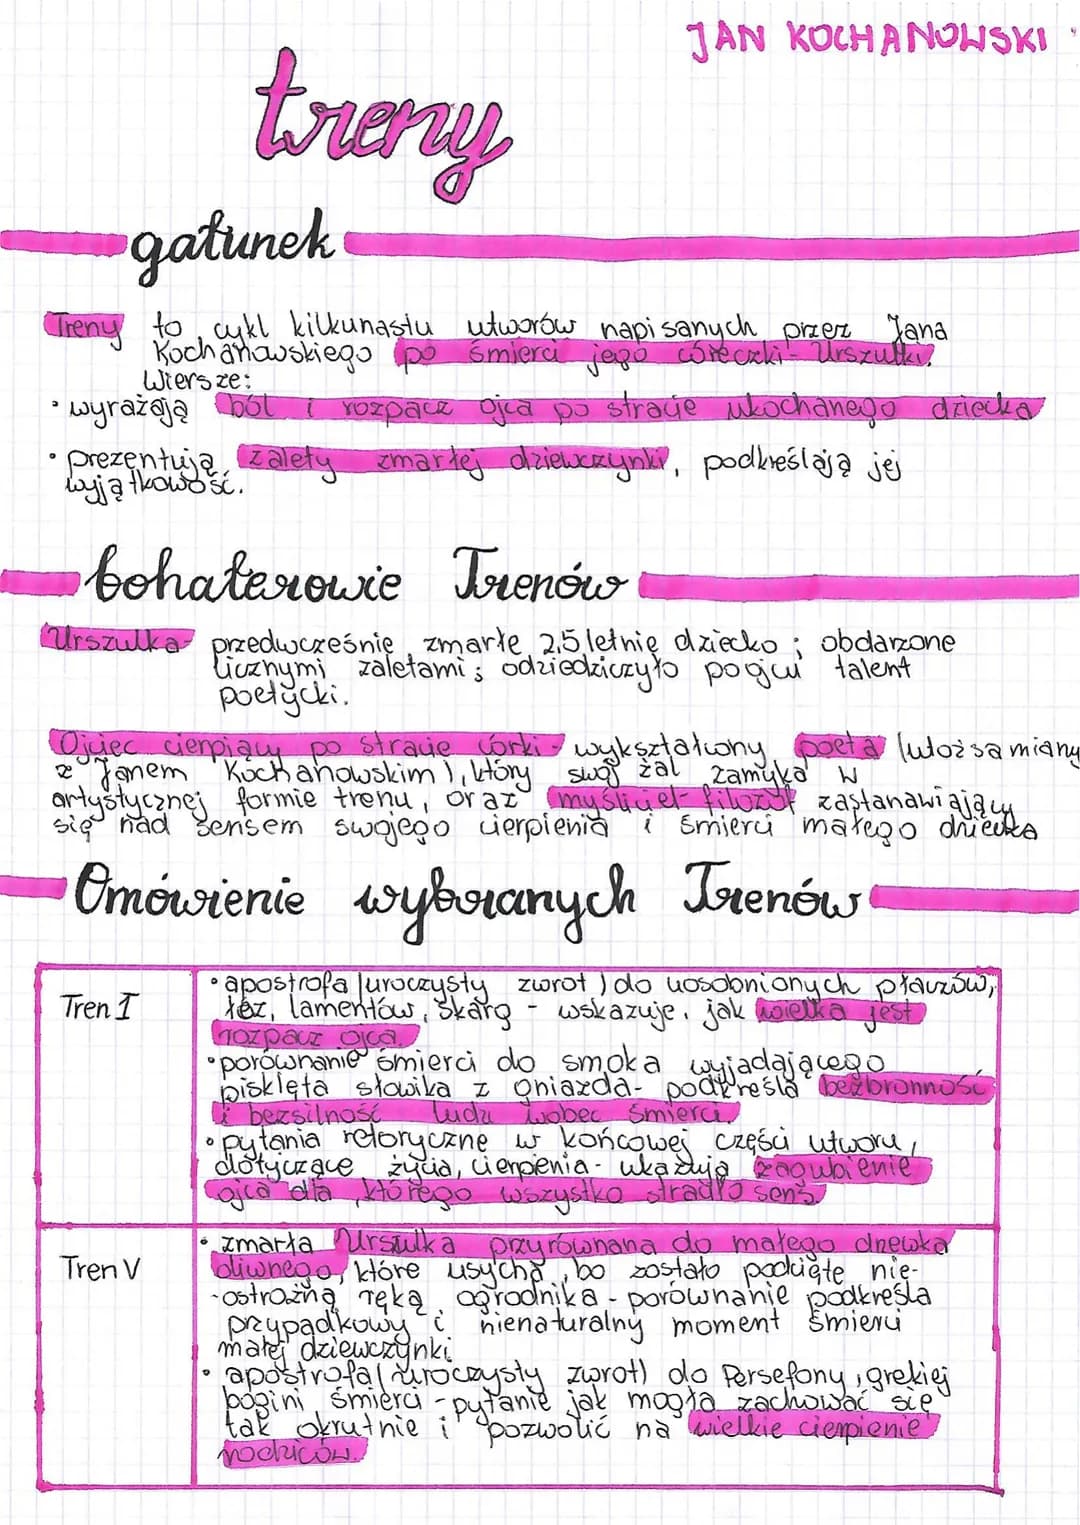 JAN KOCHANOWSKI
treny
gatunek
Treny to cykl kilkunastu utworów napisanych przez Jana
Kochanowskiego po śmierci jego córeczki - Urszulki.
Wiersze:
• wyrażają ból i rozpacz ojca po stracie ukochanego dziecka
• prezentują zalety zmarłej dziewczynki, podkreślają jej
wyjątkowość.
bohaterowie Trenów
Urszulka - przedwcześnie zmarłe 2,5 letnie dziecko ; obdarzone
licznymi zaletami ; odziedziczyło po ojcu talent
poetycki.
Ojciec cierpiący po stracie córki - wykształcony poeta (utożsamiany
z Janem Kochanowskim), który swój żal zamyka w
artystycznej formie trenu, oraz myśliciel-filozof zastanawiający
się nad sensem swojego cierpienia i śmierci małego dziecka
Omówienie wybranych Trenów
Tren I
• apostrofa (uroczysty zwrot) do uosobnionych płaczów,
łez, lamentów, skarg - wskazuje, jak wielka jest
rozpacz ojca.
• porównanie śmierci do smoka wyjadającego
pisklęta słowika z gniazda - podkreśla bezbronność
i bezsilność ludzi wobec śmierci.
• pytania retoryczne w końcowej części utworu,
dotyczące życia, cierpenia - ukazują zagubienie
ojca dla którego wszystko straciło sens.
Tren V
• zmarła Urszulka przyrównana do małego drzewka
oliwnego, które usycha, bo zostało podcięte nie-
-ostrożną ręką ogrodnika - porównanie podkreśla
przypadkowy i nienaturalny moment śmierci
małej dziewczynki
• apostrofa (uroczysty zwrot) do Persefony, grekiej
bogini śmierci - pytanie jak mogła zachować się
tak okrutnie i pozwolić na wielkie cierpienie
rodziców.